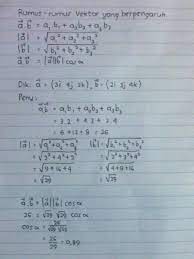 Rumus-rumus Vektor yang berpengaruh
a⃗.b⃗ = a₁b₁ + a₂b₂ + a₃b₃
|a⃗| = √a₁² + a₂² + a₃²
|b⃗| = √b₁² + b₂² + b₃²
a⃗.b⃗ = |a⃗||b⃗| cos α
Dik: a⃗ = (3i 4j 2k), b⃗ = (2i 3j 4k)
Peny:
a⃗.b⃗ = a₁b₁ + a₂b₂ + a₃b₃
= 3.2 + 4.3 + 2.4
= 6 + 12 + 8 = 26
|a⃗| = √a₁² + a₂² + a₃² |b⃗| = √b₁² + b₂² + b₃²
= √3² + 4² + 2² = √2² + 3² + 4²
= √9 + 16 + 4 = √4 + 9 + 16
= √29 = √29
a⃗.b⃗ = |a⃗||b⃗| cos α
26 = √29 √29 cos α
cos α = 26/√29 √29
= 26/29 = 0,89